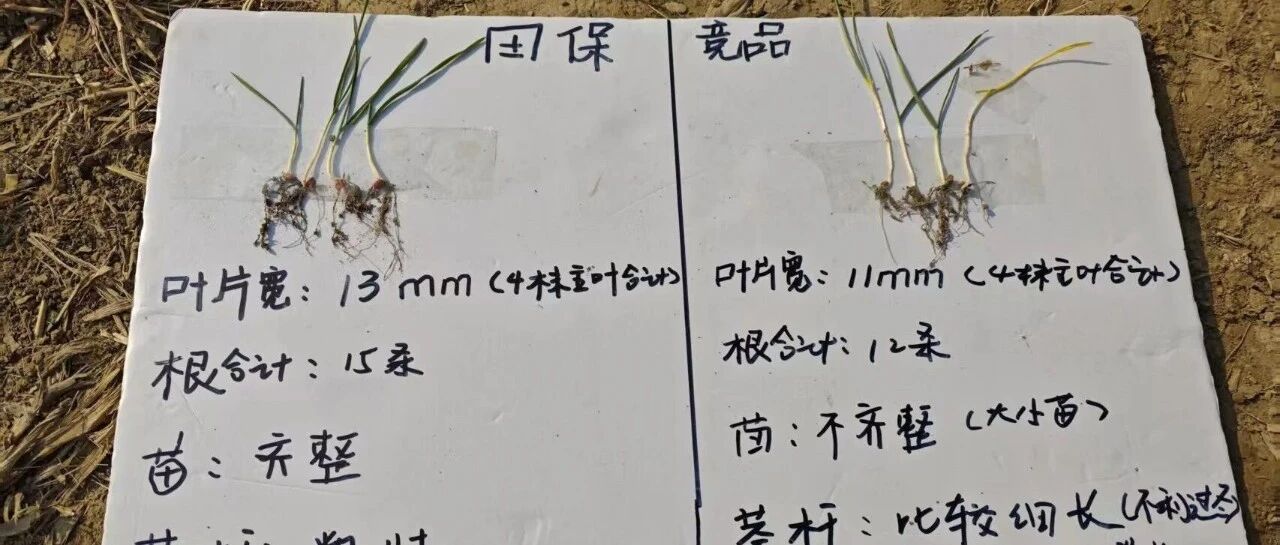 田保
叶片宽：13mm（4株主叶合计）
根合计：15条
苗：齐整
竞品
叶片宽：11mm（4株主叶合计）
根合计：12条
苗：不齐整（大小苗）
茎杆：比较细长（不利过冬